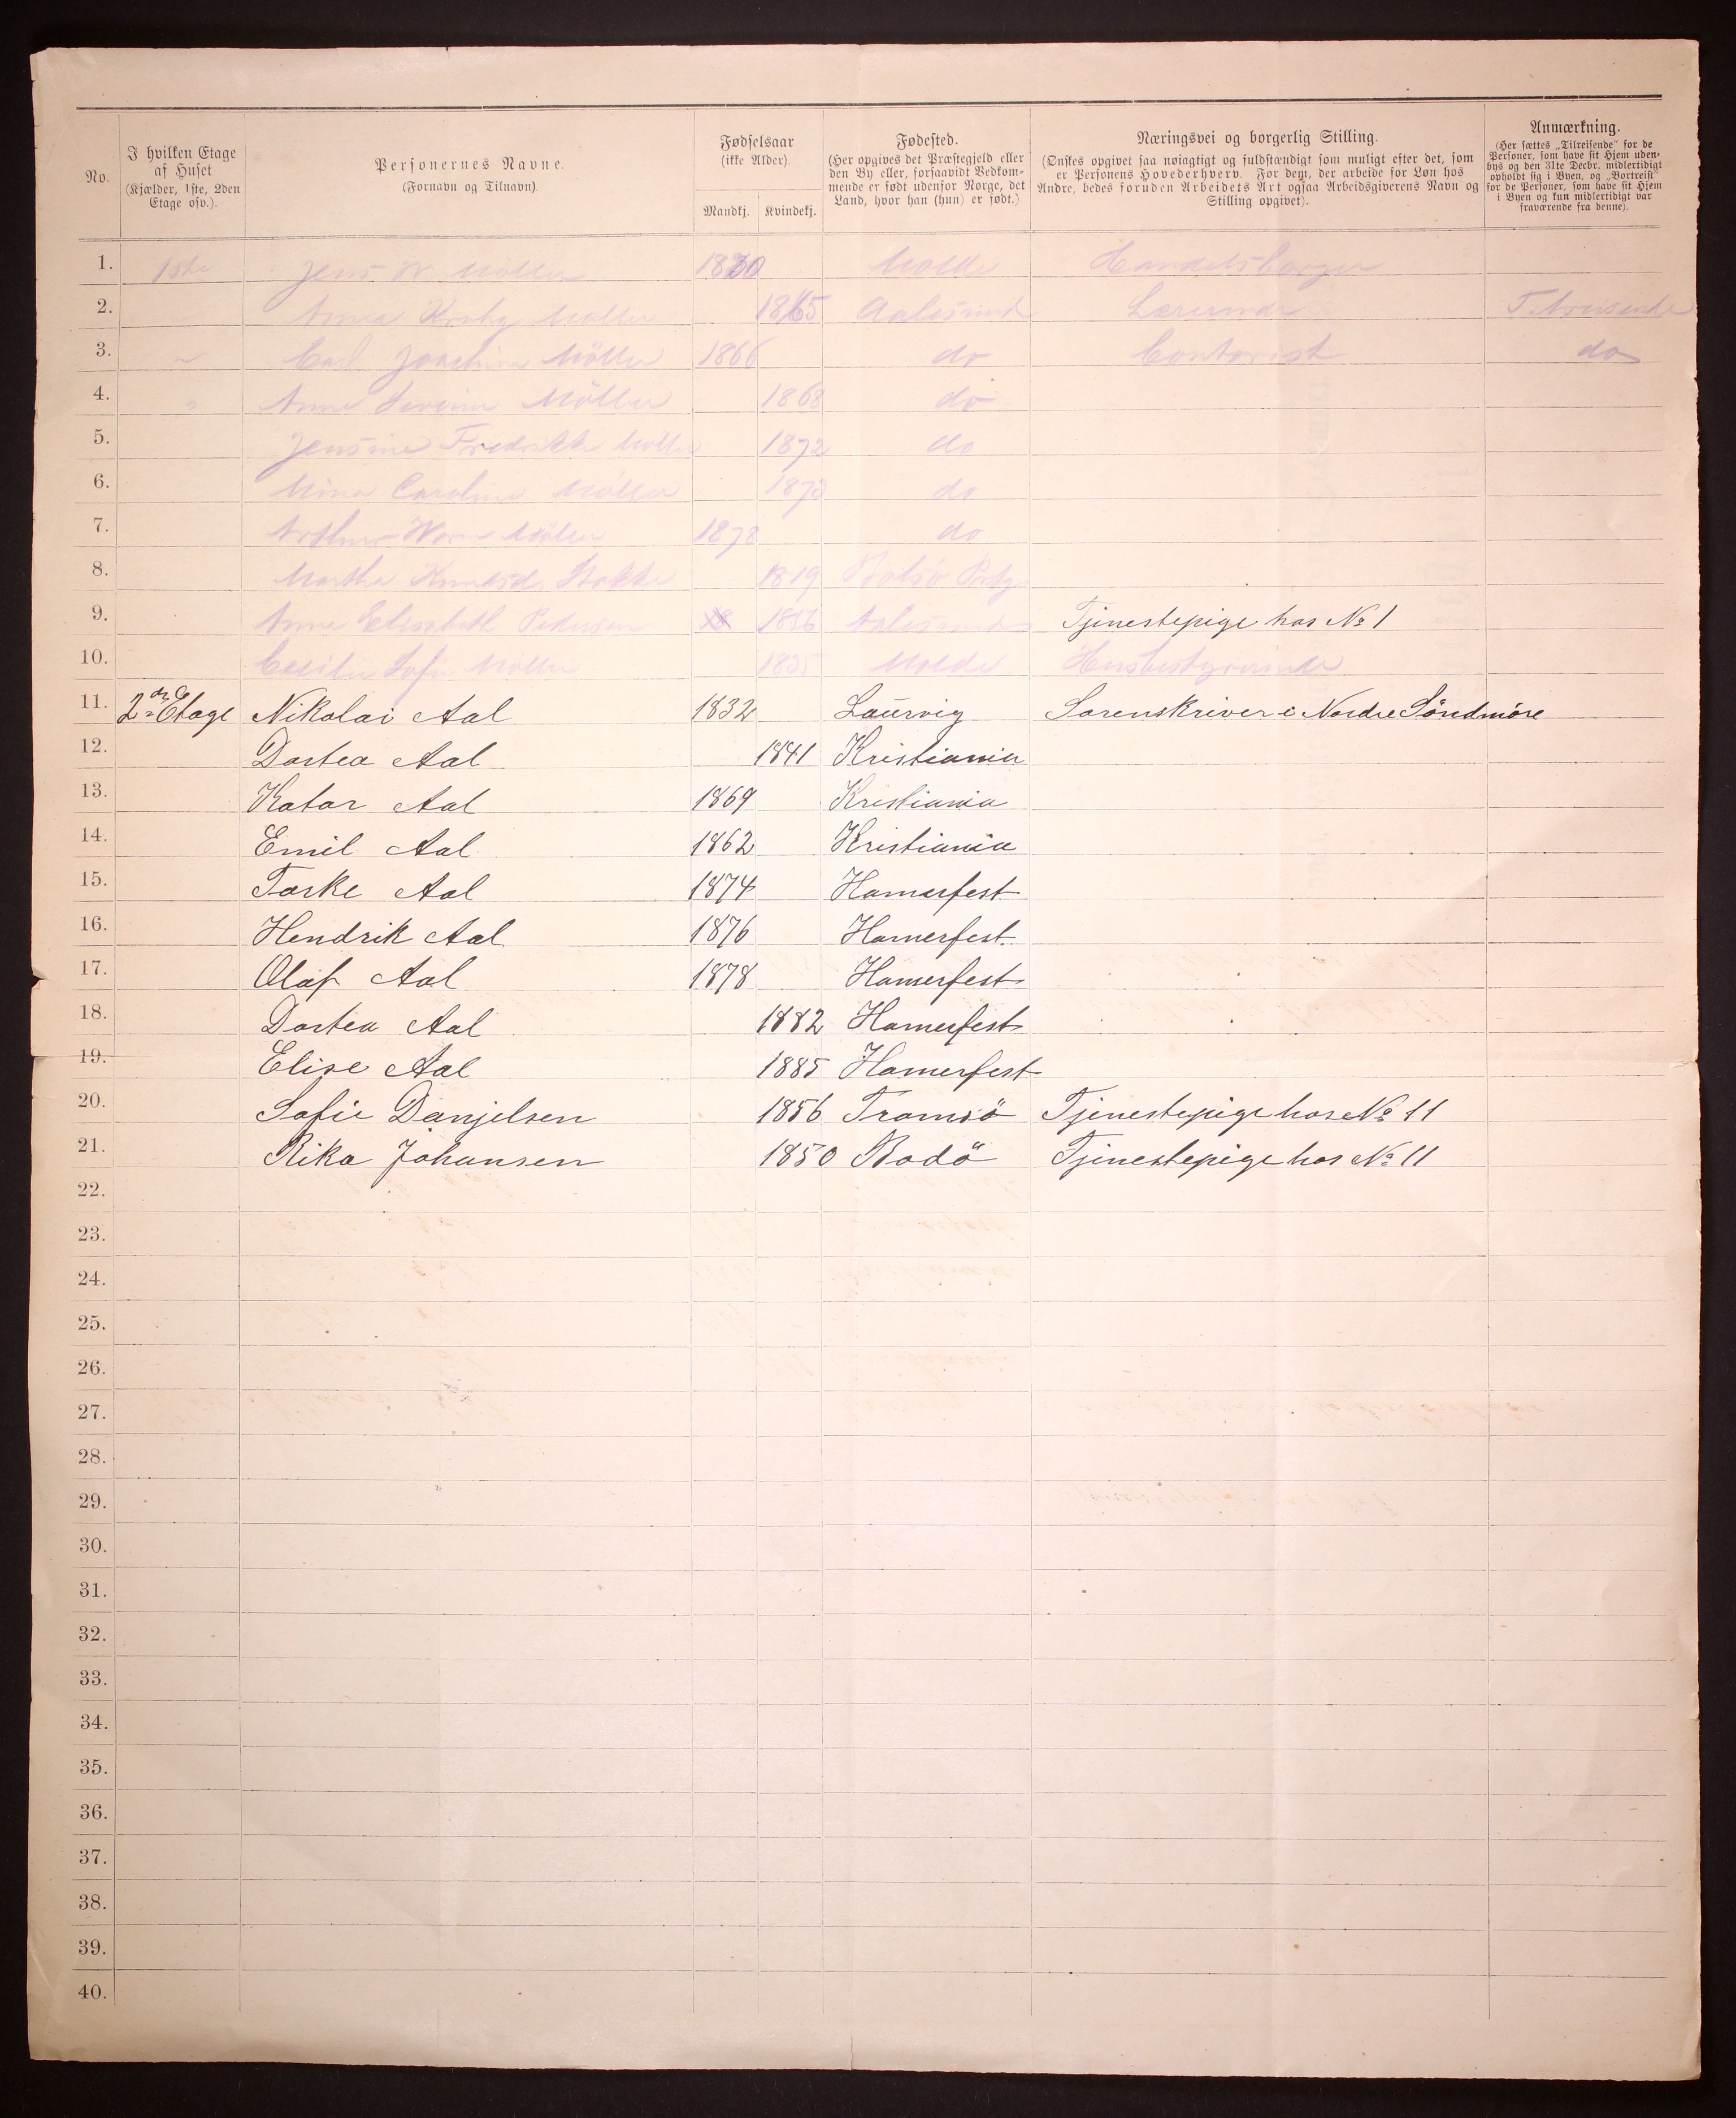 No. I hvilken Etage af Huset (Kjælder, 1ste, 2den Etage osv.). Personernes Navne. (Fornavn og Tilnavn). Fødselsaar (ikke Alder). Mandkj. Kvindekj. Fødested. (Her opgives det Præstegjeld eller den By eller, forsaavidt Vedkommende er født udenfor Norge, det Land, hvor han (hun) er født.) Næringsvei og borgerlig Stilling. (Ønskes opgivet saa nøiagtigt og fuldstændigt som muligt efter det, som er Personens Hovederhverv. For dem, der arbeide for Løn hos Andre, bedes foruden Arbeidets Art ogsaa Arbeidsgiverens Navn og Stilling opgivet). Anmærkning. (Her sættes „Tilreisende" for de Personer, som have sit Hjem udenbys og den 31te Decbr. midlertidigt opholdt sig i Byen, og „Bortreist" for de Personer, som have sit Hjem i Byen og kun midlertidigt var fraværende fra denne).
1. 1ste Jens W Möller 1830 Molde Handelsborger
2. Anna Möller 1865 Aalesund Lærerinde Tilreisende
3. " Carl Joachim Möller 1866 do Contorist do
4. " Anne Severine Möller 1868 do
5. Jensine Fredrikke Möller 1872 do
6. Mina Caroline Möller 1873 do
7. Arthur Möller 1878 do
8. Marthe Knudsd. Stokke 1819 Bolsö
9. Anne Elisabeth Pedersen 1856 Aalesund Tjenestepige hos No 1
10. Cecilie Sofie Möller 1835 Molde Husbestyrerinde
11. 2den Etage Nikolai Aal 1832 Laurvig Sorenskriver i Nordre Söndmöre
12. Dortea Aal 1841 Kristiania
13. Katar Aal 1869 Kristiania
14. Emil Aal 1862 Kristiania
15. Torke Aal 1874 Hamerfest
16. Hendrik Aal 1876 Hamerfest.
17. Olaf Aal 1878 Hamerfest
18. Dortea Aal 1882 Hamerfest
19. Elise Aal 1885 Hamerfest
20. Sofie Danjelsen 1856 Tromsö Tjenestepige hos No 11
21. Rika Johansen 1850 Bodö Tjenestepige hos No 11
22.
23.
24.
25.
26.
27.
28.
29.
30.
31.
32.
33.
34.
35.
36.
37.
38.
39.
40.